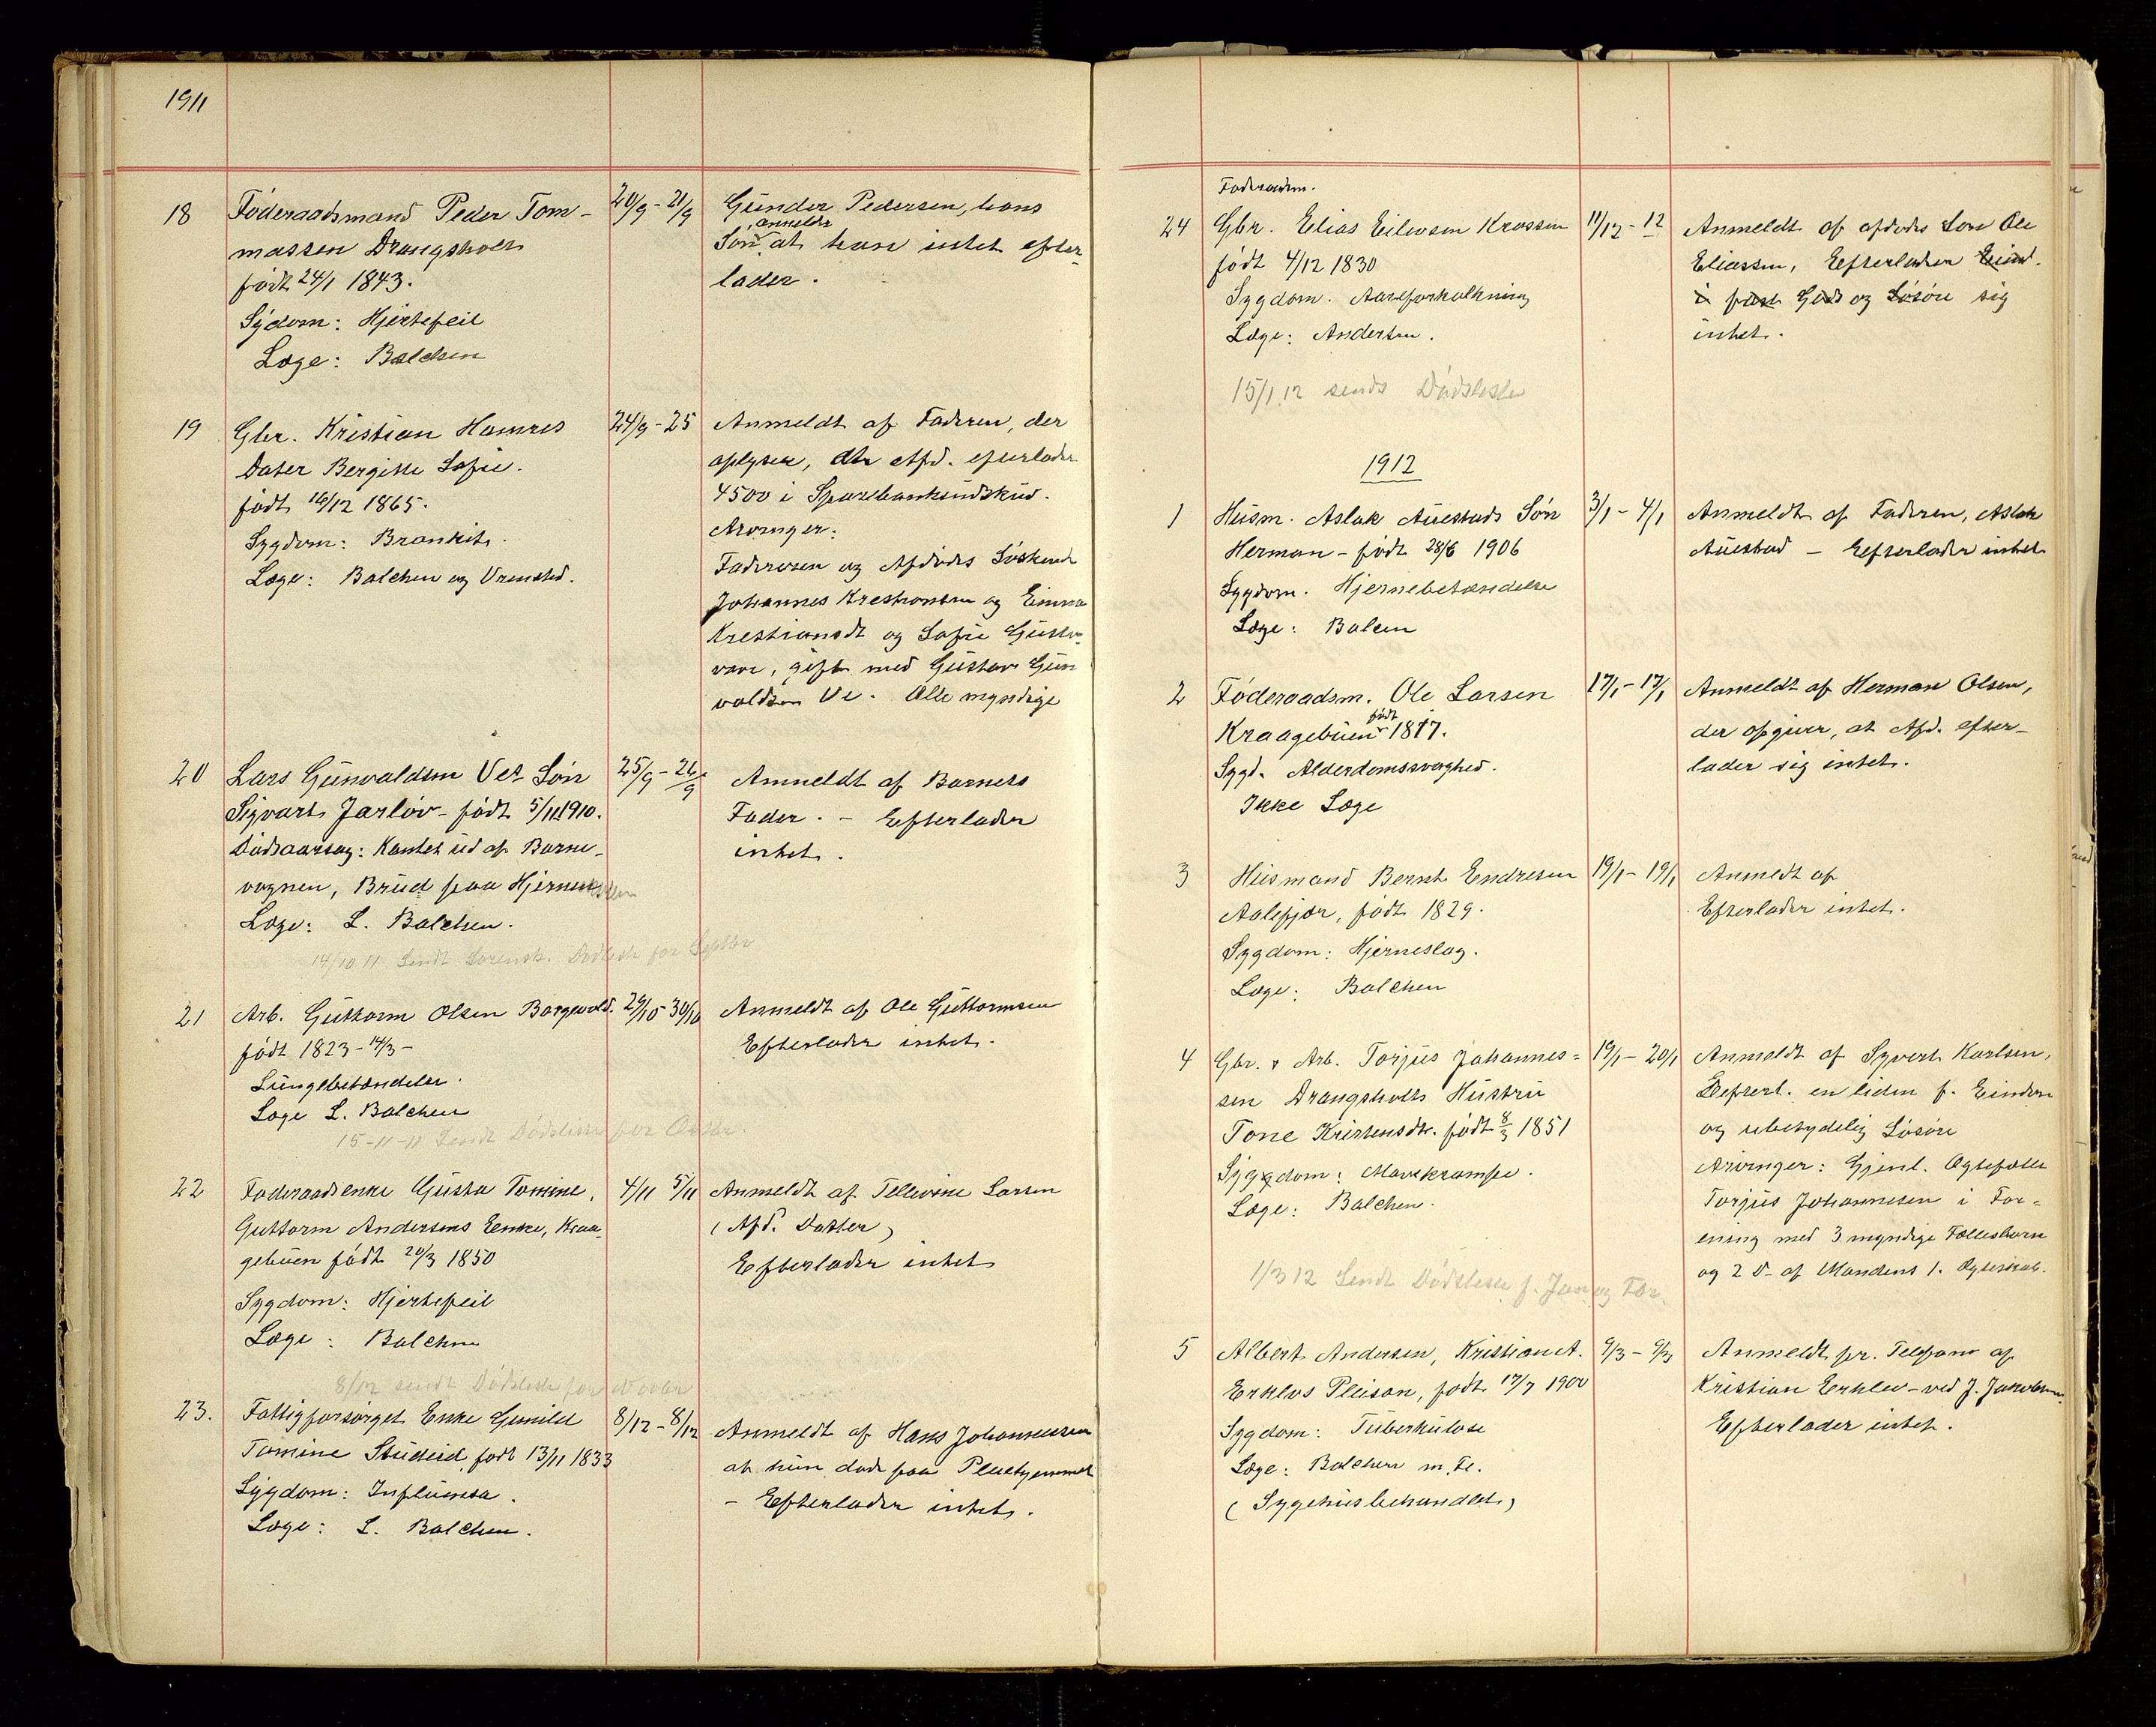 1911
18 Föderaadsmand Peder Tom-
massen Drangsholt
født 24/1 1843.
Sÿdom: Hjertefeil
Læge: Balchen
20/9 - 21/9
Gunder Pedersen, hans
anmelder
Søn at han intet efter-
lader.
19 Gbr. Kristian Hamres
Dater Bergitte Sofie.
født 16/12 1865.
Sygdom: Bronkit.
Læge: Balchen og
24/9 - 25
Anmeldt af Faderen, der
oplyser, Afd. efterlader
4500 i Sparebankindskud.
Arvinger:
Faderen og Afdødes Søskend
Johannes og Emma
og Sofie
gift med Gustav Gun
valdsen Ve. Alle myndige
20 Lars Gunvaldsen Ves Søn
Sigvart Jarløv - født 5/11 1910.
Dødsaarsag: Kantet ud af Barne-
vognen, Brud paa Hjernen
Læge: L. Balchen.
25/9 - 26/9
Anmeldt af Barnets
Fader. - Efterlader
intet.
14/10 11 Sendt Sorensk. Dødsliste for Septbr
21 Arb. Guttorm Olsen Borgevold.
født 1823 - 14/3 -
Lungebetændelse.
Læge L. Balchen
29/10 - 30/10
Anmeldt af Ole Guttormsen
Efterlader intet.
15-11-11 Sendt Dødsliste for Octbr.
22 Føderaadsenke Gusta Tomine,
Guttorm Andersens Eenke, Kraa-
gebuen født 20/3 1850
Sygdom: Hjertefeil
Læge: Balchen
4/11 5/11
Anmeldt af Tellevine Larsen
(Afd. Datter)
Efterlader intet
8/12 sendt Dødsliste for Novbr
23. Fattigforsørget Enke Gunild
Tomine Studeid født 13/11 1833
Sÿgdom: Influensa.
Læge: L. Balchen.
8/12 - 8/12
Anmeldt af Hans Johannessen
at hun døde paa Pleiehjemmet
- Efterlader intet.
Føderaadsm.
24 Gbr. Elias Eilevsen Krossen
født 4/12 1830
Sygdom. Aareforkalkning
Læge: Andersen.
11/12 - 12
Anmeldt af afdødes Søn Ole
Eliassen, Efterlader Eiend.
i fast Gods og Løsøre sig
intet.
15/1 12 sendt Dødsliste
1912
1 Husm. Aslak Auestads Søn
Herman - født 28/6 1906
Sygdom. Hjernebetændelse
Læge: Balcen
3/1 - 4/1
Anmeldt af Faderen, Aslak
Auestad - Efterlader intet
2 Føderaadsm. Ole Larsen
født
Kraagebuen 1817.
Sygd. Alderdomssvaghed.
Ikke Læge
17/1 - 17/1
Anmeldt af Herman Olsen,
der opgiver, at Afd. efter-
lader sig intet.
3 Husmand Bernt Endresen
Aalefjær, født 1829.
Sygdom: Hjerneslag.
Læge: Balchen
19/1 - 19/1
Anmedt af
Efterlader intet.
4 Gbr. & Arb. Torjus Johannes=
sen Drangsholts Hustru
Tone Kristensdtr. født 8/3 1851
Sygdom: Mavekrampe.
Læge: Balchen.
19/1 - 20/1
Anmeldt af Syvert Karlsen,
Efterl. en liden f. Eindom
og ubetydelig Løsøre
Arvinger: Gjenl. Ægtefælle
Torjus Johannesen i For=
ening med 3 myndige Fællesbørn
og 2 D- af Mandens 1. Ægteskab.
1/3 12 Sendt Dødsliste f. Jan og Febr.
5 Albert Andersen, Kristian A.
Erklevs Pleisøn, født 17/7 1900
Sygdom: Tuberkulose
Læge: Balchen m. Fl.
(Sygehusbehandlet)
9/3 - 9/3
Anmeldt pr. Telefonn af
Kristian Erklev - ved J. Jakobsen.
Efterlader intet.